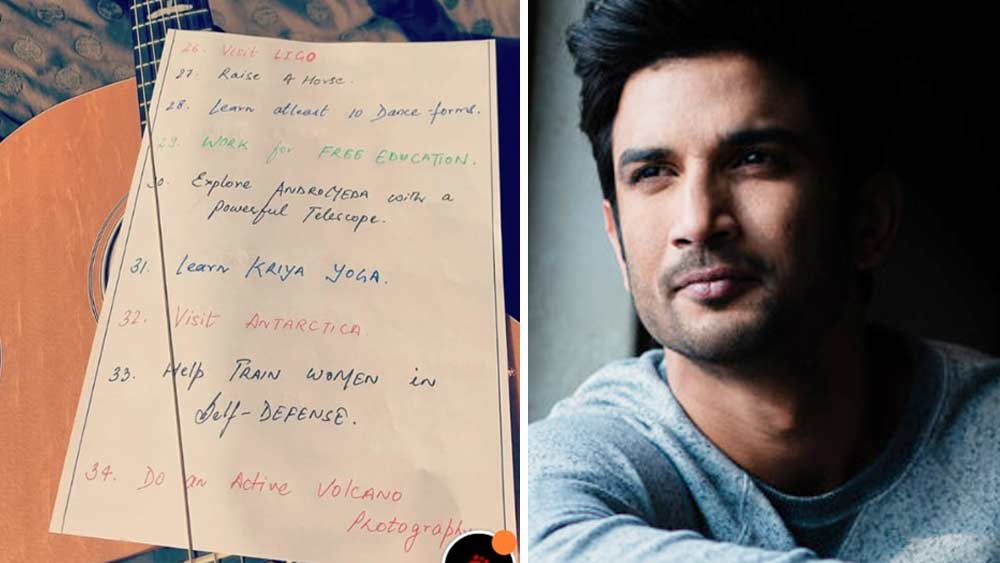 26. Visit LIGO
27. Raise A Horse.
28. Learn atleast 10 Dance-forms.
29. WORK for FREE EDUCATION.
30. Explore ANDROMEDA with a
powerful Telescope.
31. Learn KRIYA YOGA.
32. Visit ANTARCTICA
33. Help TRAIN WOMEN in
Self-DEFENSE.
34. DO an Active VOLCANO
Photography